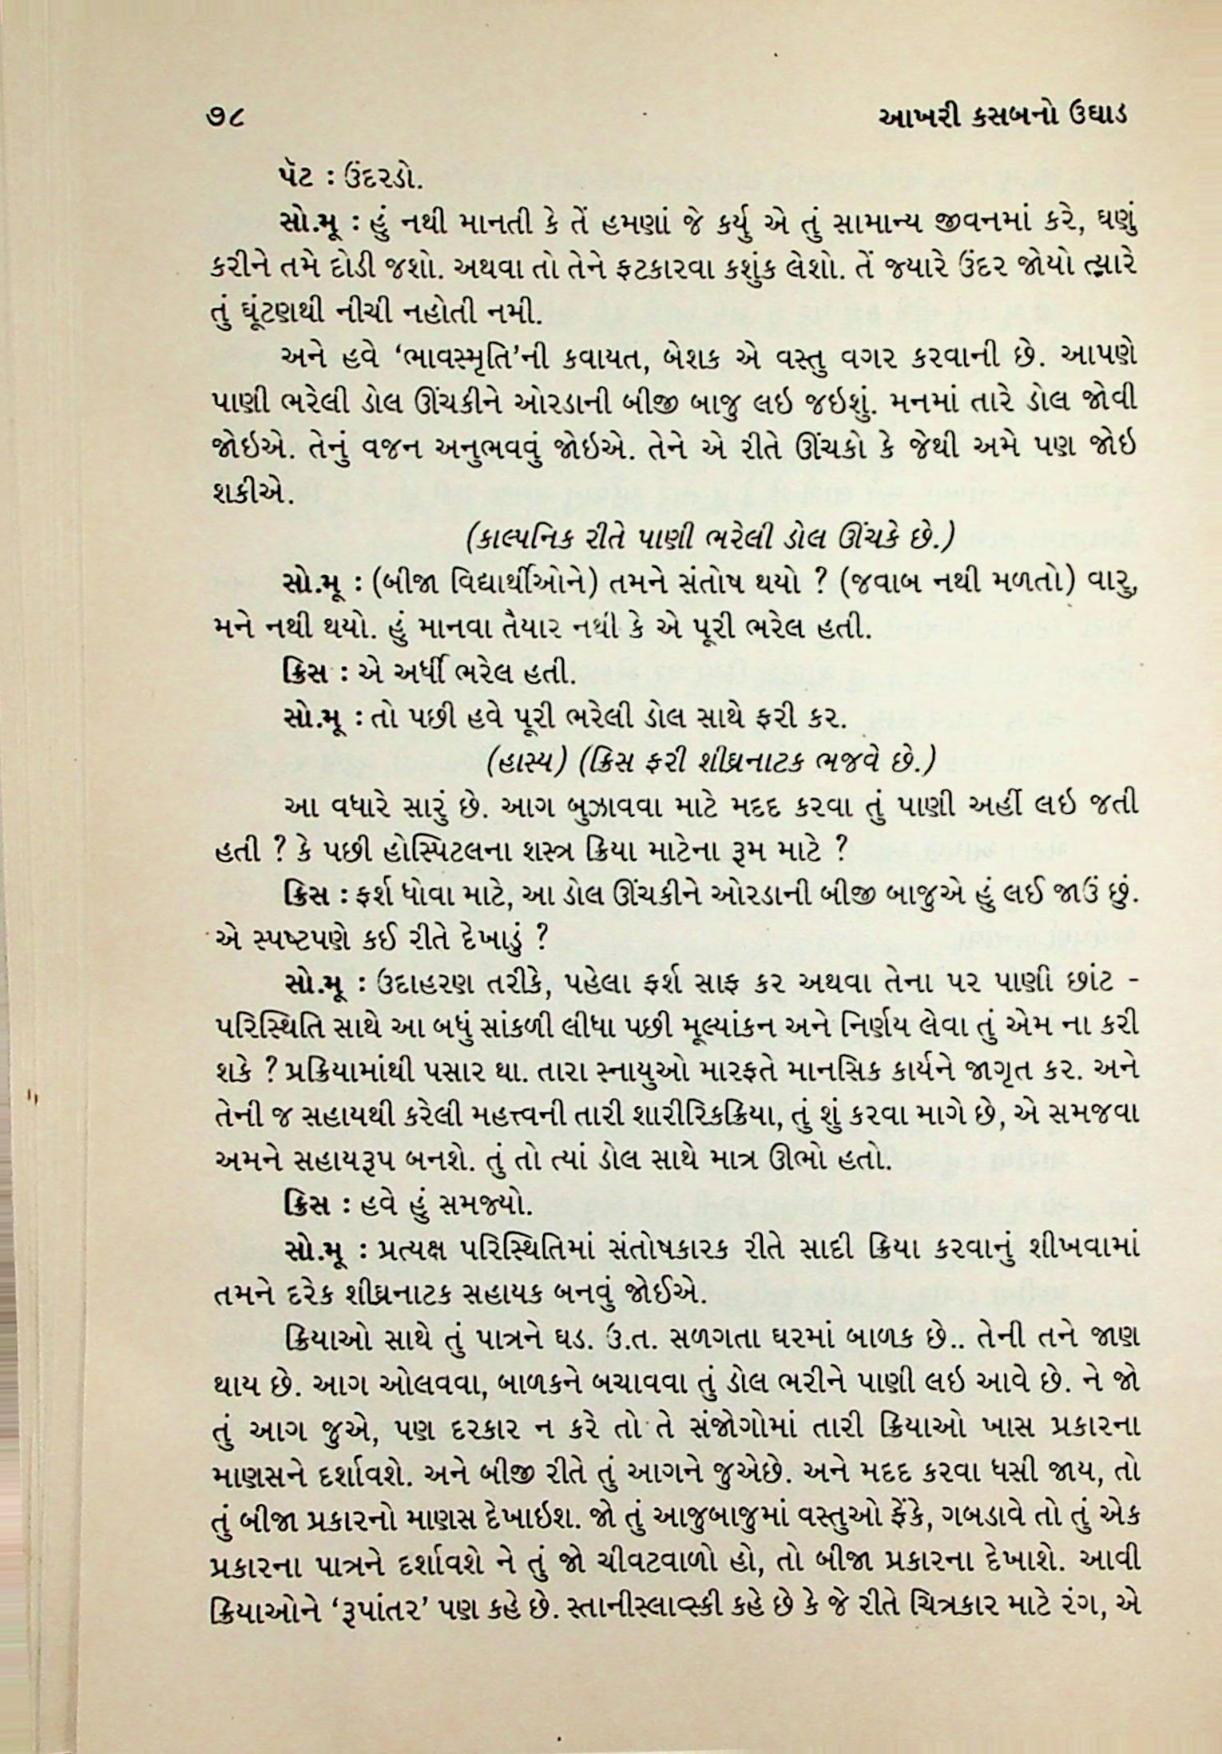 ૭૮ આખરી કસબનો ઉઘાડ
પૅટ : ઉંદરડો.
સો.મૂ : હું નથી માનતી કે તેં હમણાં જે કર્યુ એ તું સામાન્ય જીવનમાં કરે, ઘણું
કરીને તમે દોડી જશો. અથવા તો તેને ફટકારવા કશુંક લેશો. તેં જ્યારે ઉંદર જોયો ત્યારે
તું ઘૂંટણથી નીચી નહોતી નમી.
અને હવે ‘ભાવસ્મૃતિ’ની કવાયત, બેશક એ વસ્તુ વગર કરવાની છે. આપણે
પાણી ભરેલી ડોલ ઊંચકીને ઓરડાની બીજી બાજુ લઇ જઇશું. મનમાં તારે ડોલ જોવી
જોઇએ. તેનું વજન અનુભવવું જોઇએ. તેને એ રીતે ઊંચકો કે જેથી અમે પણ જોઇ
શકીએ.
(કાલ્પનિક રીતે પાણી ભરેલી ડોલ ઊંચકે છે.)
સો.મૂ : (બીજા વિદ્યાર્થીઓને) તમને સંતોષ થયો ? (જવાબ નથી મળતો) વારુ,
મને નથી થયો. હું માનવા તૈયાર નથી કે એ પૂરી ભરેલ હતી.
ક્રિસ : એ અર્ધી ભરેલ હતી.
સો.મૂ : તો પછી હવે પૂરી ભરેલી ડોલ સાથે ફરી કર.
(હાસ્ય) (ક્રિસ ફરી શીઘ્રનાટક ભજવે છે.)
આ વધારે સારું છે. આગ બુઝાવવા માટે મદદ કરવા તું પાણી અહીં લઇ જતી
હતી ? કે પછી હોસ્પિટલના શસ્ત્ર ક્રિયા માટેના રૂમ માટે ?
ક્રિસ : ફર્શ ધોવા માટે, આ ડોલ ઊંચકીને ઓરડાની બીજી બાજુએ હું લઈ જાઉં છું.
એ સ્પષ્ટપણે કઈ રીતે દેખાડું ?
સો.મૂ : ઉદાહરણ તરીકે, પહેલા ફર્શ સાફ કર અથવા તેના પર પાણી છાંટ -
પરિસ્થિતિ સાથે આ બધું સાંકળી લીધા પછી મૂલ્યાંકન અને નિર્ણય લેવા તું એમ ના કરી
શકે ? પ્રક્રિયામાંથી પસાર થા. તારા સ્નાયુઓ મારફતે માનસિક કાર્યને જાગૃત કર. અને
તેની જ સહાયથી કરેલી મહત્ત્વની તારી શારીરિકક્રિયા, તું શું કરવા માગે છે, એ સમજવા
અમને સહાયરૂપ બનશે. તું તો ત્યાં ડોલ સાથે માત્ર ઊભો હતો.
ક્રિસ : હવે હું સમજ્યો.
સો.મૂ : પ્રત્યક્ષ પરિસ્થિતિમાં સંતોષકારક રીતે સાદી ક્રિયા કરવાનું શીખવામાં
તમને દરેક શીઘ્રનાટક સહાયક બનવું જોઈએ.
ક્રિયાઓ સાથે તું પાત્રને ઘડ. ઉ.ત. સળગતા ઘરમાં બાળક છે.. તેની તને જાણ
થાય છે. આગ ઓલવવા, બાળકને બચાવવા તું ડોલ ભરીને પાણી લઇ આવે છે. ને જો
તું આગ જુએ, પણ દરકાર ન કરે તો તે સંજોગોમાં તારી ક્રિયાઓ ખાસ પ્રકારના
માણસને દર્શાવશે. અને બીજી રીતે તું આગને જુએછે. અને મદદ કરવા ધસી જાય, તો
તું બીજા પ્રકારનો માણસ દેખાઇશ. જો તું આજુબાજુમાં વસ્તુઓ ફેંકે, ગબડાવે તો તું એક
પ્રકારના પાત્રને દર્શાવશે ને તું જો ચીવટવાળો હો, તો બીજા પ્રકારના દેખાશે. આવી
ક્રિયાઓને ‘રૂપાંતર’ પણ કહે છે. સ્તાનીસ્લાવ્સ્કી કહે છે કે જે રીતે ચિત્રકાર માટે રંગ, એ